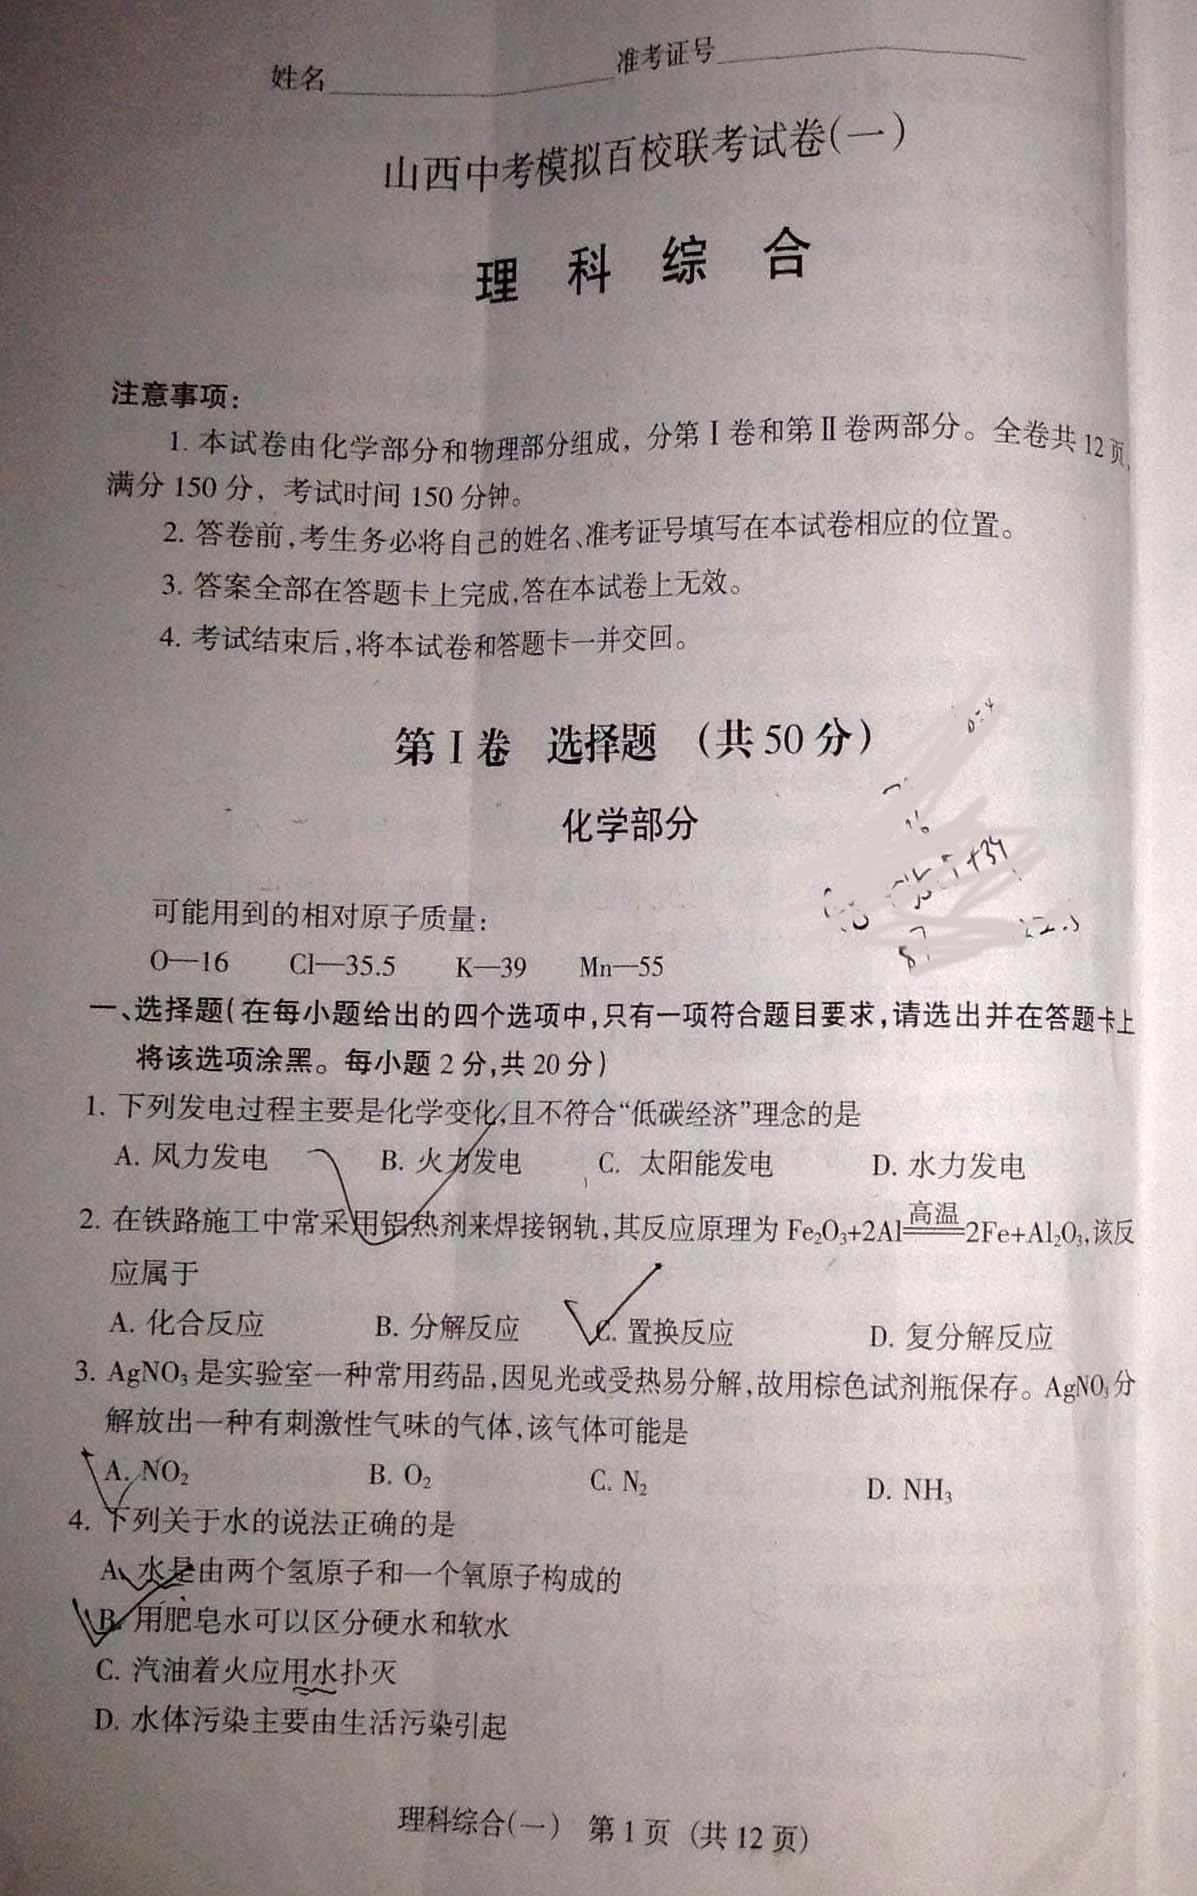 姓名 准考证号
山西中考模拟百校联考试卷(一)
理 科 综 合
注意事项:
1. 本试卷由化学部分和物理部分组成，分第Ⅰ卷和第Ⅱ卷两部分。全卷共12页,
满分150分，考试时间150分钟。
2. 答卷前,考生务必将自己的姓名、准考证号填写在本试卷相应的位置。
3. 答案全部在答题卡上完成,答在本试卷上无效。
4. 考试结束后,将本试卷和答题卡一并交回。
第Ⅰ卷 选择题 (共50分)
化学部分
+39
可能用到的相对原子质量:
O—16 Cl—35.5 K—39 Mn—55
一、选择题(在每小题给出的四个选项中,只有一项符合题目要求,请选出并在答题卡上
将该选项涂黑。每小题2分,共20分)
1. 下列发电过程主要是化学变化,且不符合“低碳经济”理念的是
A. 风力发电 B. 火力发电 C. 太阳能发电 D. 水力发电
2. 在铁路施工中常采用铝热剂来焊接钢轨,其反应原理为Fe₂O₃+2Al高温2Fe+Al₂O₃,该反
应属于
A. 化合反应 B. 分解反应 C. 置换反应 D. 复分解反应
3. AgNO₃是实验室一种常用药品,因见光或受热易分解,故用棕色试剂瓶保存。AgNO₃分
解放出一种有刺激性气味的气体,该气体可能是
A. NO₂ B. O₂ C. N₂ D. NH₃
4. 下列关于水的说法正确的是
A. 水是由两个氢原子和一个氧原子构成的
B. 用肥皂水可以区分硬水和软水
C. 汽油着火应用水扑灭
D. 水体污染主要由生活污染引起
理科综合(一) 第1页 (共12页)